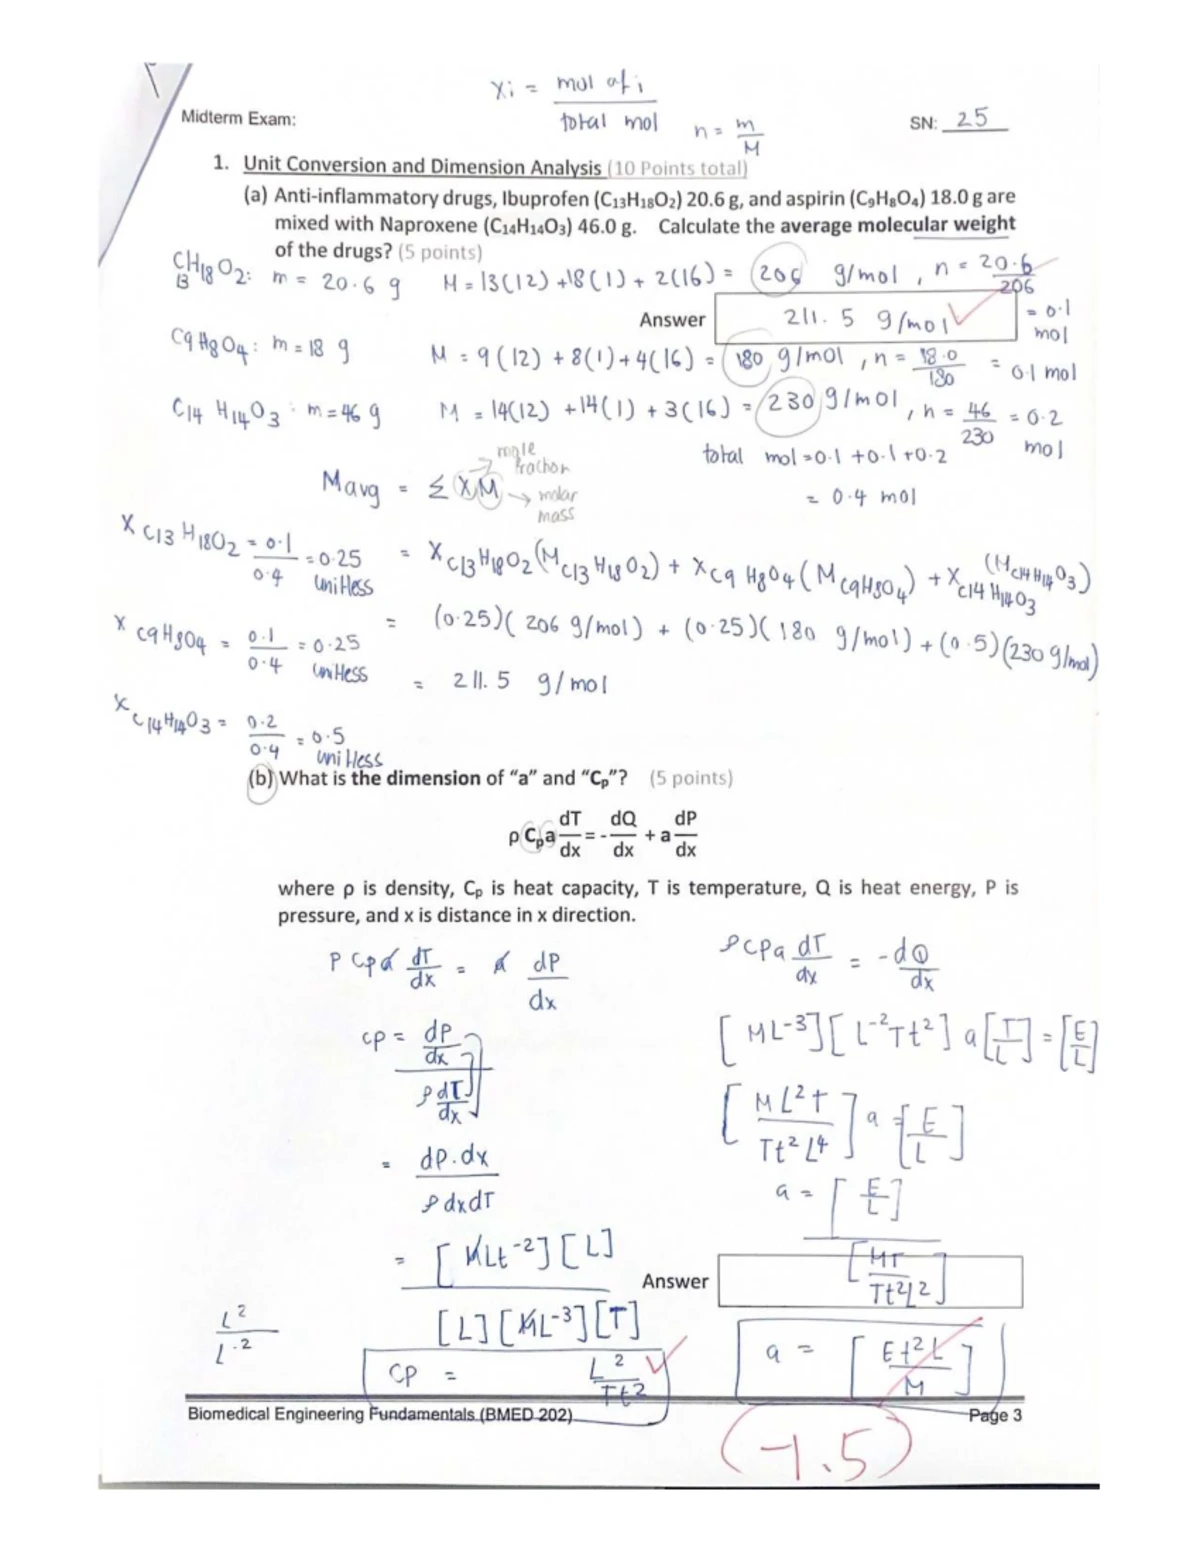 Xi = mol of i / total mol
n = m / M
Midterm Exam:
SN: 25
1. Unit Conversion and Dimension Analysis (10 Points total)
(a) Anti-inflammatory drugs, Ibuprofen (C₁₃H₁₈O₂) 20.6 g, and aspirin (C₉H₈O₄) 18.0 g are
mixed with Naproxene (C₁₄H₁₄O₃) 46.0 g. Calculate the average molecular weight
of the drugs? (5 points)
C₁₃H₁₈O₂: m = 20.6 g M = 13(12) + 18(1) + 2(16) = 206 g/mol, n = 20.6 / 206 = 0.1 mol
Answer 211.5 g/mol ✓
C9H8O4: m = 18 g M = 9(12) + 8(1) + 4(16) = 180 g/mol, n = 18.0 / 180 = 0.1 mol
C14 H14O3: m = 46 g M = 14(12) + 14(1) + 3(16) = 230 g/mol, n = 46 / 230 = 0.2 mol
total mol = 0.1 + 0.1 + 0.2
= 0.4 mol
mole fraction
Mavg = Σ XM → molar mass
X C13 H18O2 = 0.1 / 0.4 = 0.25 unitless
= X C13H18O2 (M C13 H18 O2) + X C9 H8O4 (M C9H8O4) + X C14 H14O3 (M C14H14O3)
X C9H8O4 = 0.1 / 0.4 = 0.25 unitless
= (0.25)(206 g/mol) + (0.25)(180 g/mol) + (0.5)(230 g/mol)
= 211.5 g/mol
X C14H14O3 = 0.2 / 0.4 = 0.5 unitless
(b) What is the dimension of “a” and “Cₚ”? (5 points)
ρ Cₚa dT/dx = - dQ/dx + a dP/dx
where ρ is density, Cₚ is heat capacity, T is temperature, Q is heat energy, P is
pressure, and x is distance in x direction.
ρ Cp a dT/dx = a dP/dx
Cp = dP/dx / ρ dT/dx
= dP.dx / ρ dxdT
= [MLt⁻²][L] / [L][ML⁻³][T]
L² / L⁻²
Cp = L² / Tt² ✓
ρ Cp a dT/dx = - dQ/dx
[ML⁻³][L⁻²Tt²] a [T/L] = [E/L]
[ML²T / Tt²L⁴] a = [E/L]
a = [E/L] / [MT / Tt²L²]
Answer
a = [Et²L / M]
Biomedical Engineering Fundamentals (BMED 202)
Page 3
(-1.5)